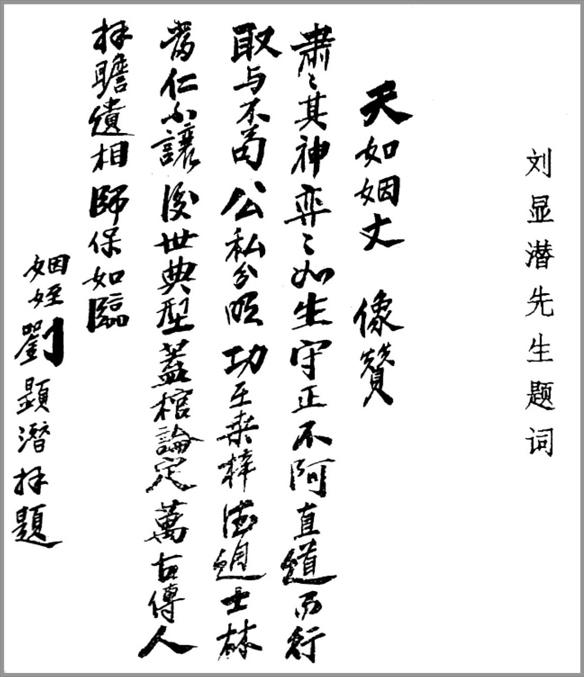 刘显潜先生题词
天如姻丈 像贊
肅〻其神弈〻如生守正不阿直道而行
取与不苟公私分明功在桑梓德士林
當仁不讓後世典型蓋棺論定萬古傳人
拜瞻遺相師保如臨
姻姪劉顯潛拜題